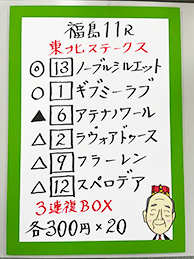 福島11R
東北ステークス
◎ 13 ノーブルシルエット
○ 1 ギブミーラブ
▲ 6 アテナノワール
△ 2 ラヴォアドゥース
△ 9 フラーレン
△ 12 スペロデア
3連複BOX
各300円×20